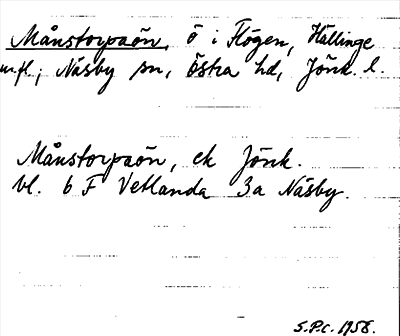 Månstorpaön, ö i Flögen, Hällinge
m.fl.; Näsby sn, östra hd, Jönk. l.
Månstorpaön, ek Jönk.
bl. 6 F Vetlanda 3a Näsby.
S.P.C. 1958.